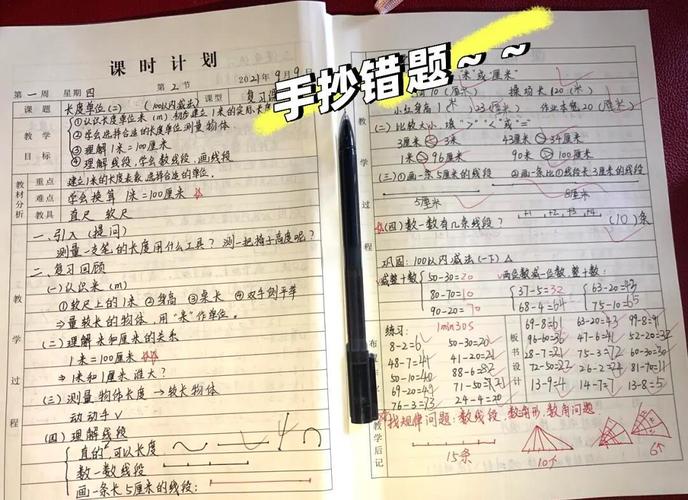 课时计划
第一周 星期四 第2节 2021年9月9日
课题 长度单位(二) (100以内减法) 课型 复习课
教学目标
①认识长度单位米(m),初步建立1米的实际长
②学会选择合适的长度单位测量物体.
③理解1米=100厘米
④理解线段,学会数线段,画线段
教材分析
重点 建立1米的长度表象,选择合适的单位.
难点 学会换算 1米=100厘米
教具 直尺 软尺
教学过程
一、引入 (提问)
测量一支笔的长度用什么工具? 测一把椅子高度呢?
二、复习回顾
(一)认识米(m)
①软尺上的1米 ②身高 ③桌长 ④双手侧平举
⇒量较长的物体,用"米"作单位.
(二)理解米和厘米的关系
1米=100厘米
⇒1米和1厘米谁大?
(三)测量物体长度→较长物体
动动手√
(四)理解线段
直的 可以长度
数一数线段
画一条长5厘米的线段:
手抄错题~~
"米"或"厘米"
10(厘米) 操场长120(米)
小红身高1(米)23(厘米) 作业本宽20(厘米)
(二)比较大小,填">""<"或"="
3厘米<3米 43厘米>34厘米
1米>96厘米 90米>100厘米
(三)①画一条5厘米的线段 ②画一条比①线段长3厘米的线段
5厘米 8厘米
(四)数一数有几条线段? (10)条
教学过程
巩固:100以内减法(一下)△
减整十数 50-30=20 两位数减一位数、整十数: 37-5=32 63-20=43
80-70=10 68-4=64 75-10=65
90-20=70
练习: 1min30s
8-2=6 50-30=20 69-8=61 63-20=43 99-8=91
48-7=41 41-20=21 96-60=36 47-6=41 52-20=32
50-10=40 88-6=82 28-7=21 75-3=72 60-30=30
69-20=49 71-50=21 72-50=22 26-2=24 81-70=11
76-3=73 24-4=20 13-9=4 14-7=7 13-8=5
布置作业
板书设计
教学后记
找规律问题:数线段、数角形、数角问题.
15条 10个 6个